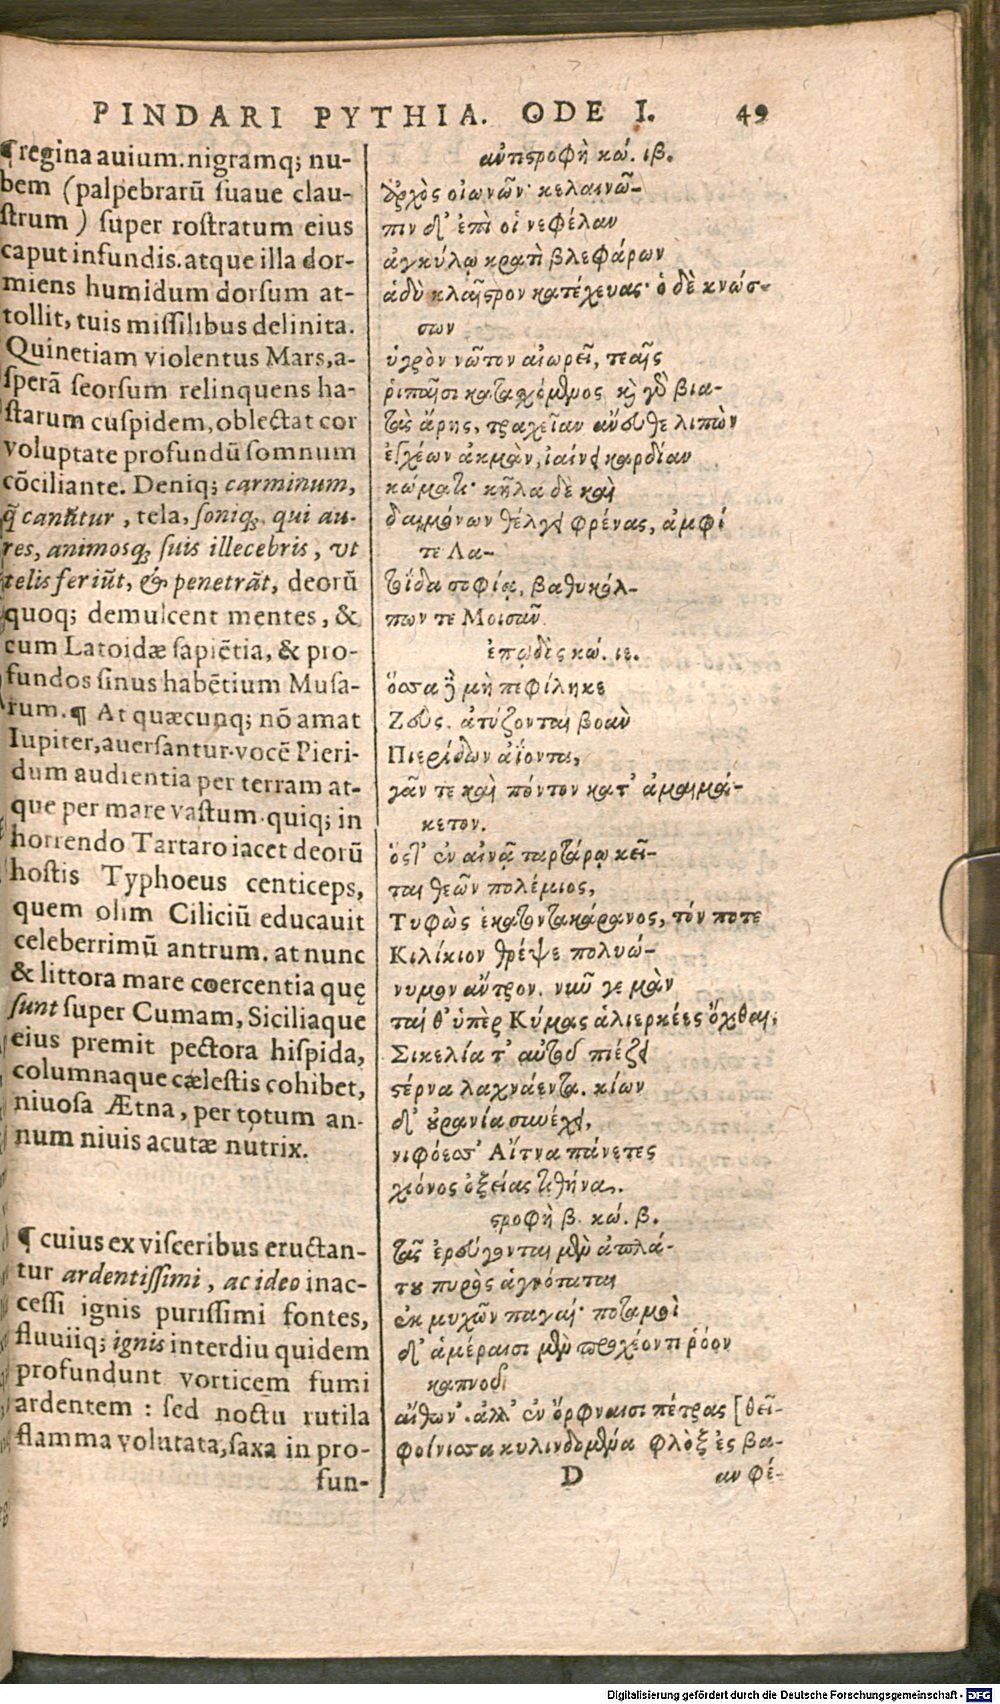 PINDARI PYTHIA. ODE I. 49
¶regina auium. nigramq; nu-
bem (palpebrarũ suaue clau-
strum) super rostratum eius
caput infundis. atque illa dor-
miens humidum dorsum at-
tollit, tuis missilibus delinita.
Quinetiam violentus Mars, a-
sperã seorsum relinquens ha-
starum cuspidem, oblectat cor
voluptate profundũ somnum
cõciliante. Deniq; carminum,
q̃ cantũtur, tela, soniq; qui au-
res, animosq; suis illecebris, vt
telis feriũt, & penetrãt, deorũ
quoq; demulcent mentes, &
cum Latoidæ sapiẽtia, & pro-
fundos sinus habẽtium Musa-
rum. ¶ At quæcunq; nõ amat
Iupiter, auersantur vocẽ Pieri-
dum audientia per terram at-
que per mare vastum. quiq; in
horrendo Tartaro iacet deorũ
hostis Typhoeus centiceps,
quem olim Ciliciũ educauit
celeberrimũ antrum. at nunc
& littora mare coercentia quę
sunt super Cumam, Siciliaque
eius premit pectora hispida,
columnaque cælestis cohibet,
niuosa Ætna, per totum an-
num niuis acutæ nutrix.
¶ cuius ex visceribus eructan-
tur ardentissimi, ac ideo inac-
cessi ignis purissimi fontes,
fluuiiq; ignis interdiu quidem
profundunt vorticem fumi
ardentem : sed noctu rutila
flamma volutata, saxa in pro-
fun-
ἀντιστροφὴ κώ. ιβ.
ἀρχὸς οἰωνῶν· κελαινῶ-
πιν δ' ἐπὶ οἱ νεφέλαν
ἀγκύλῳ κρατὶ βλεφάρων
ἁδὺ κλαῖστρον κατέχευας· ὁ δὲ κνώσ-
σων
ὑγρὸν νῶτον αἰωρεῖ, τεαῖς
ῥιπαῖσι κατασχόμενος. καὶ γὸ βια-
τὰς ἄρης, τραχεῖαν ἄνευθε λιπὼν
ἐγχέων ἀκμὰν, ἰαίνει καρδίαν
κώματι· κῆλα δὲ καὶ
δαιμόνων θέλγει φρένας, ἀμφί
τε Λα-
τοίδα σοφίᾳ, βαθυκόλ-
πων τε Μοισᾶν.
ἐπῳδὸς κώ. ιε.
ὅσσα δὲ μὴ πεφίληκε
Ζεὺς. ἀτύζονται βοὰν
Πιερίδων ἀΐοντα,
γᾶν τε καὶ πόντον κατ' ἀμαιμά-
κετον.
ὅς τ' ἐν αἰνᾷ ταρτάρῳ κεῖ-
ται θεῶν πολέμιος,
Τυφὼς ἑκατοντακάρανος, τόν ποτε
Κιλίκιον θρέψε πολυώ-
νυμον ἄντρον. νῦν γε μὰν
ταί θ' ὑπὲρ Κύμας ἁλιερκέες ὄχθαι,
Σικελία τ' αὐτοῦ πιέζει
στέρνα λαχνάεντα. κίων
δ' οὐρανία συνέχει,
νιφόεσσ' Αἴτνα πάνετες
χιόνος ὀξείας τιθήνα.
στροφὴ β. κώ. β.
τᾶς ἐρεύγονται μὲν ἀπλά-
του πυρὸς ἁγνόταται
ἐκ μυχῶν παγαί· ποταμοὶ
δ' ἁμέραισι μὲν προχέοντι ῥόον
καπνοῦ
αἴθων'. ἀλλ' ἐν ὄρφναισι πέτρας [θεῖ-
φοίνισσα κυλινδομένα φλὸξ ἐς βα-
D αν φέ-
Digitalisierung gefördert durch die Deutsche Forschungsgemeinschaft - DFG